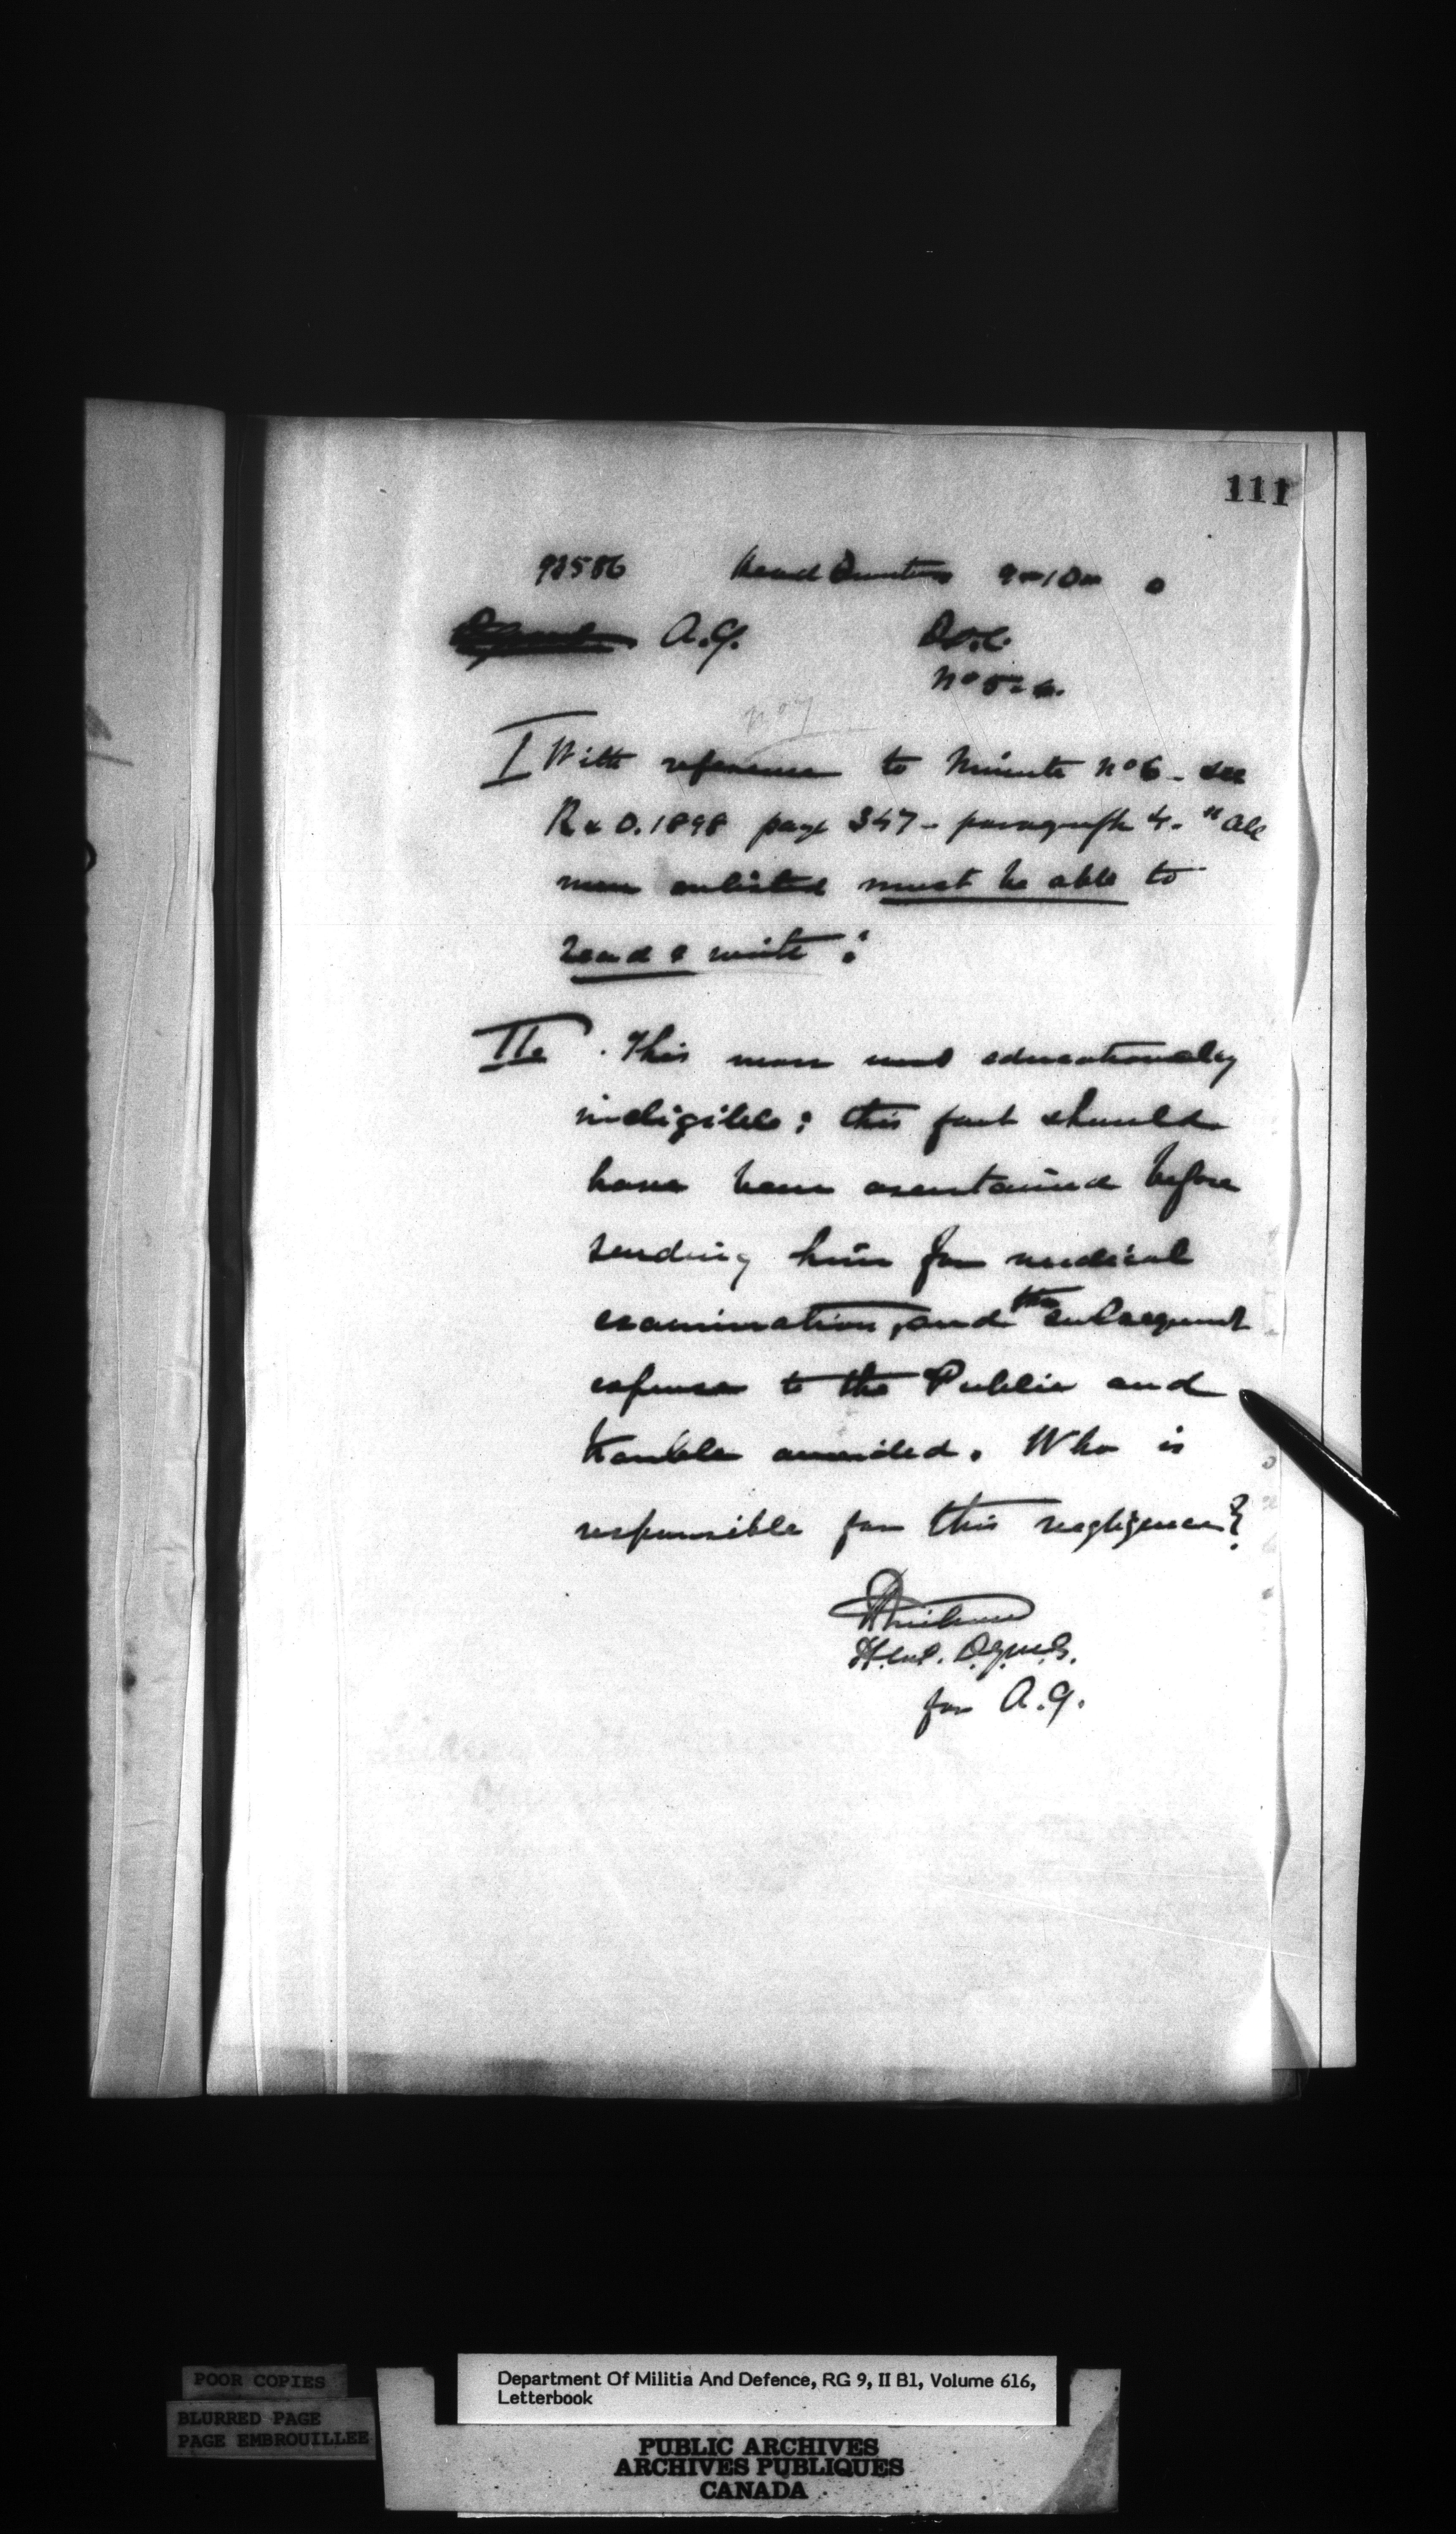 111
92586 Head Quarters
A.G. D.O.C.
No 5
No 7
I With reference to Minute No 6 - see
R & O. 1898 page 347 - paragraph 4. "All
men enlisted must be able to
read & write :
II. This man was educationally
ineligible: this fact should
have been ascertained before
sending him for medical
examination, and the subsequent
expense to the Public and
trouble avoided. Who is
responsible for this negligence?
for A.G.
POOR COPIES
BLURRED PAGE
PAGE EMBROUILLEE
Department Of Militia And Defence, RG 9, II B1, Volume 616,
Letterbook
PUBLIC ARCHIVES
ARCHIVES PUBLIQUES
CANADA